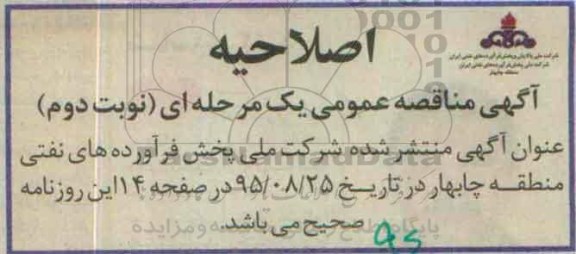 شرکت ملی پالایش و پخش فرآورده‌های نفتی ایران
شرکت ملی پخش فرآورده‌های نفتی ایران
منطقه چابهار
اصلاحیه
آگهی مناقصه عمومی یک مرحله ای (نوبت دوم)
عنوان آگهی منتشر شده شرکت ملی پخش فرآورده های نفتی
منطقه چابهار در تاریخ ۹۵/۰۸/۲۵ در صفحه ۱۴ این روزنامه
صحیح می باشد.